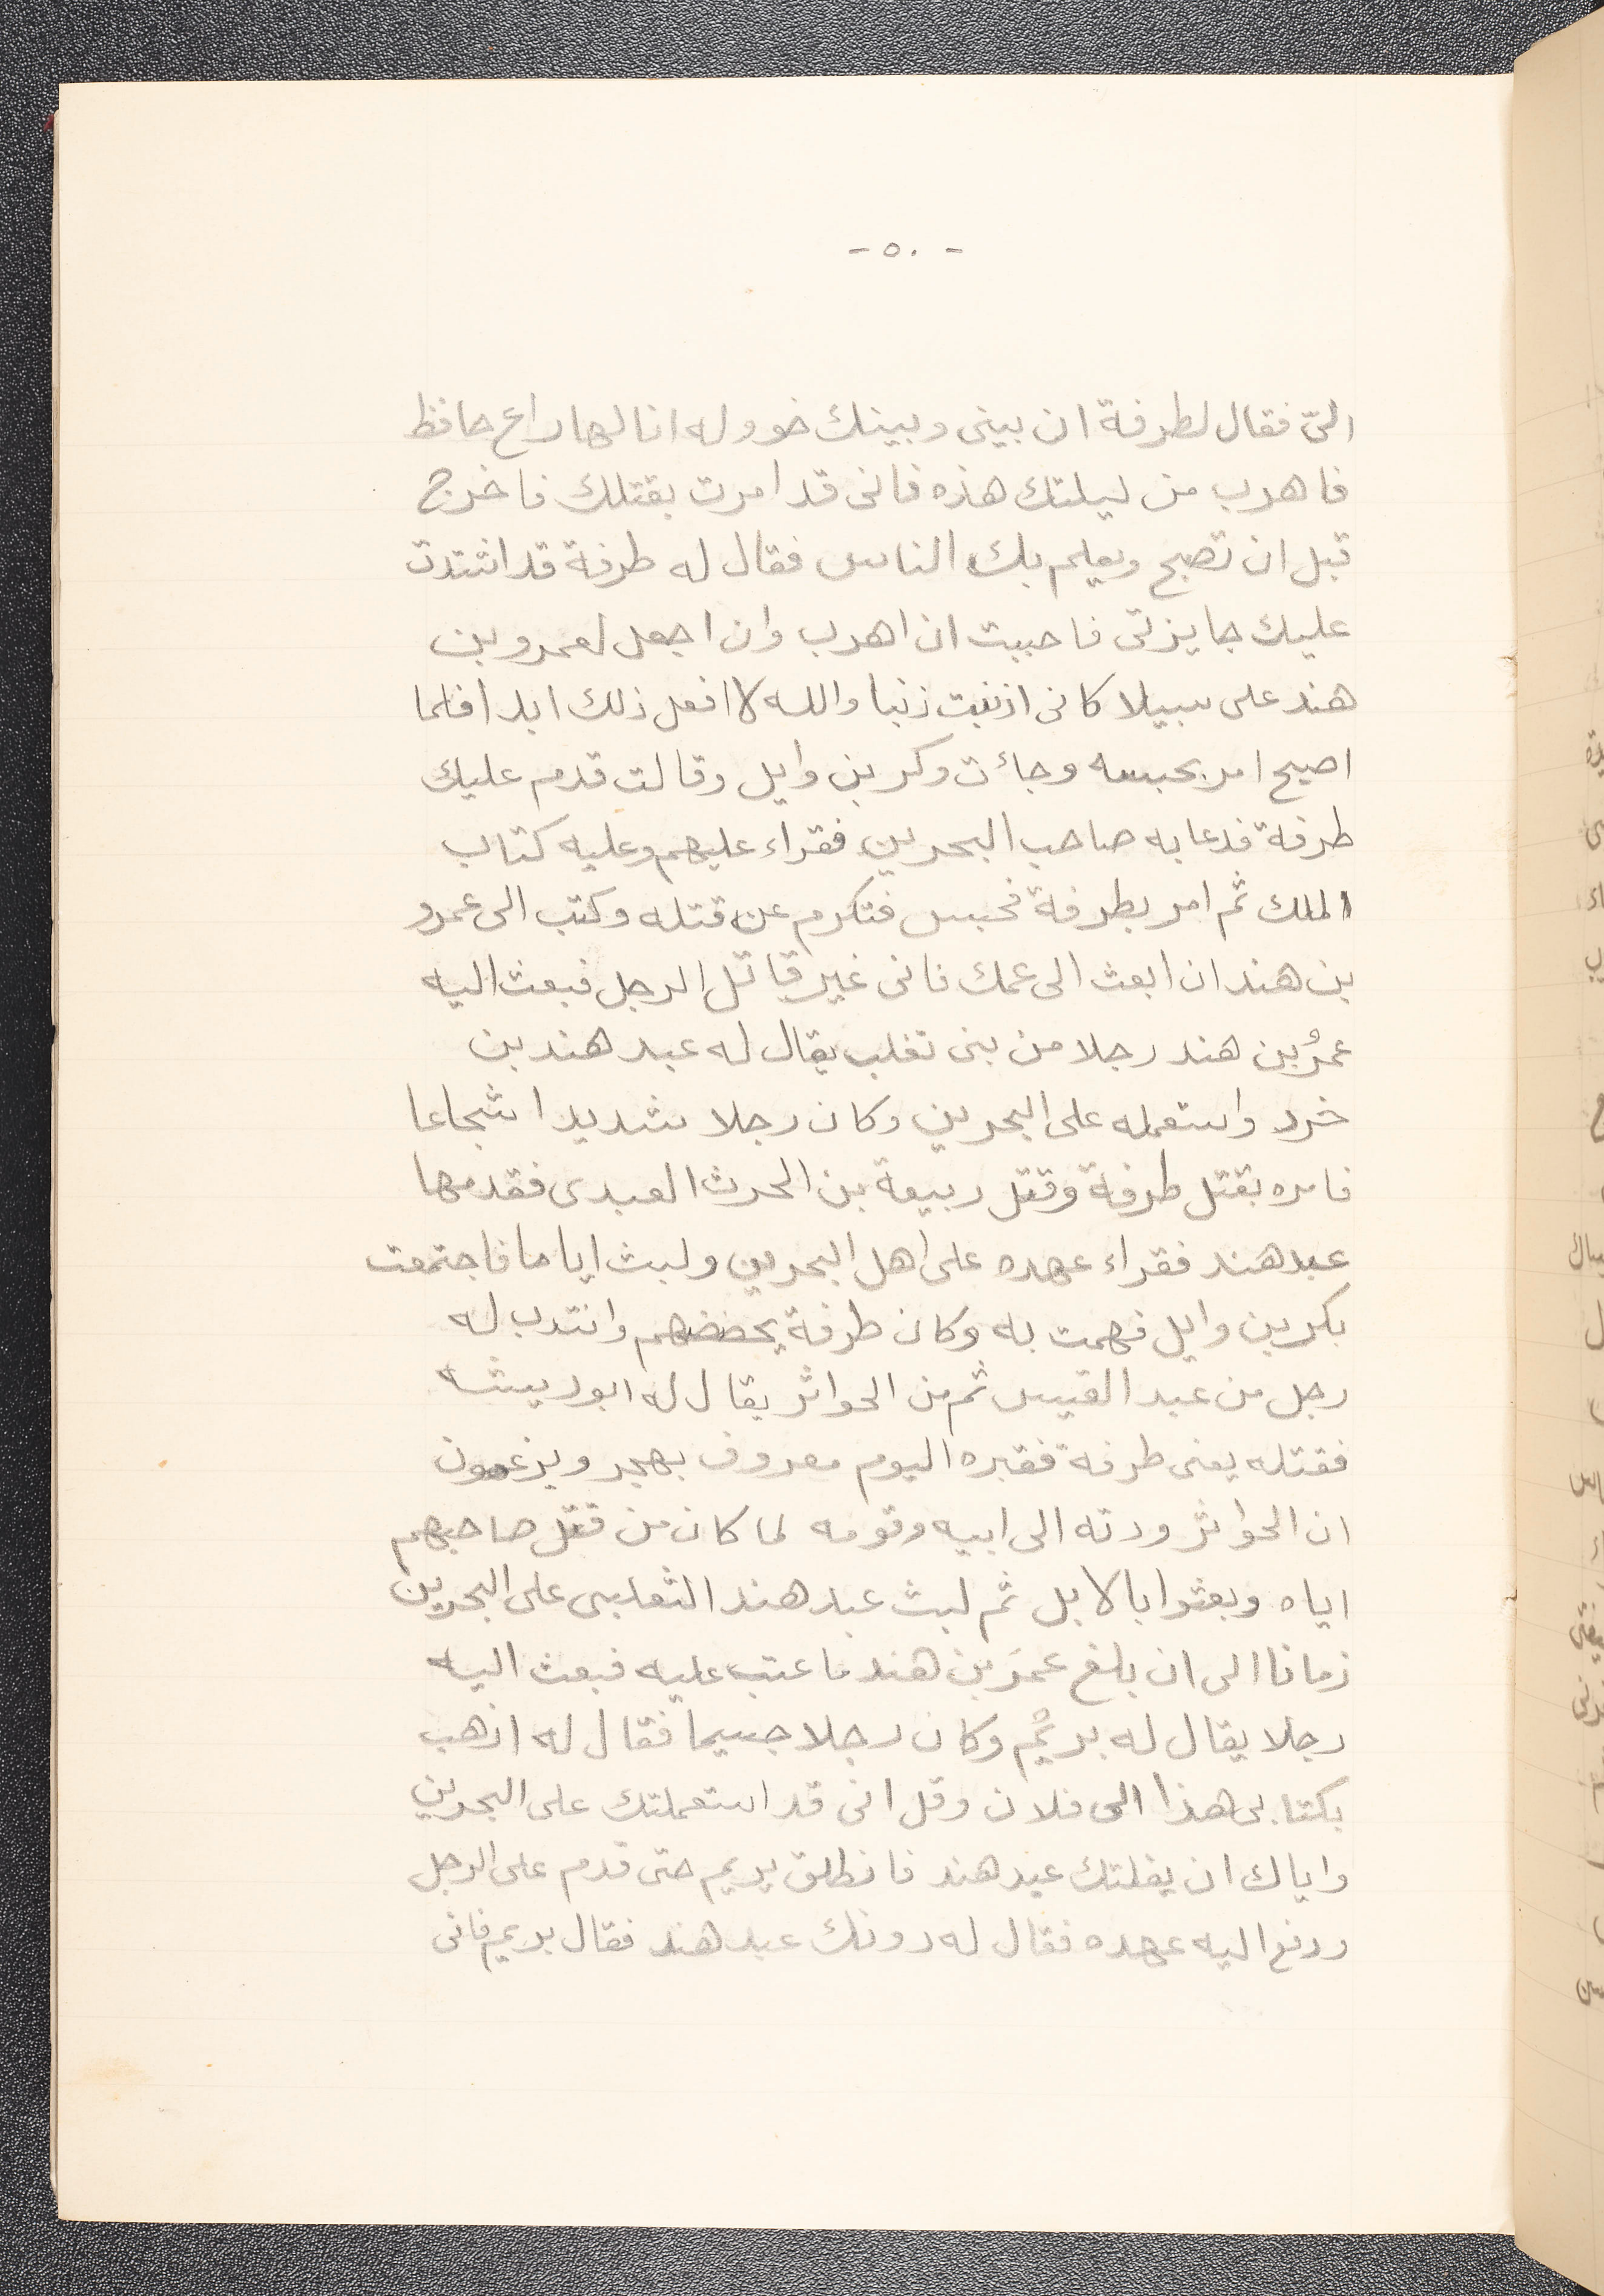 - ٥٠ -
الىّ فقال لطرفة ان بينى وبينك خووله انا لها راع حافظ
فاهرب من ليلتك هذه فانى قد امرت بقتلك فاخرج
قبل ان تصبح ويعلم بك الناس فقال له طرفة قد اشتدت
عليك جايزتى فاحببت ان اهرب وان اجعل لعمرو بن
هند على سبيلا كانى اذنبت ذنبا والله لا افعل ذلك ابدا فلما
اصبح امر بحبسه وجاءت وكر بن وايل وقالت قدم عليك
طرفة فدعا به صاحب البحرين فقراء عليهم وعليه كتاب
الملك ثم امر بطرفة فحبس فتكرم عن قتله وكتب الى عمرو
بن هند ان ابعث الى عمك فانى غير قاتل الرجل فبعث اليه
عمرُبن هند رجلا من بنى تغلب يقال له عبد هند بن
خرد واستعمله على البحرين وكان رجلا شديدا شجاعا
فامره بقتل طرفة وقتل ربيعة بن الحرث العبدى فقدمها
عبد هند فقراء عهده على اهل البحرين ولبث اياما فاجتمعت
بكر بن وايل فهمت به وكان طرفة يحضضهم وانتدب له
رجل من عبد القيس ثم من الحواثر يقال له ابو ريشه
فقتله يعنى طرفة فقبره اليوم معروف بهجر ويزعمون
ان الحواثر ودته الى ابيه وقومه لما كان من قتل صاحبهم
اياه وبعثوا بالابل ثم لبث عبد هند الثعلبى على البحرين
زمانا الى ان بلغ عمرَبن هند ما عتب عليه فبعث اليه
رجلا يقال له بريْم وكان رجلا جسيما فقال له اذهب
بكتابى هذا الى فلان وقل انى قد استعملتك على البحرين
واياك ان يفلتك عبد هند فانطلق يريم حتى قدم على الرجل
ودفع اليه عهده فقال له دونك عبد هند فقال بريم فانى